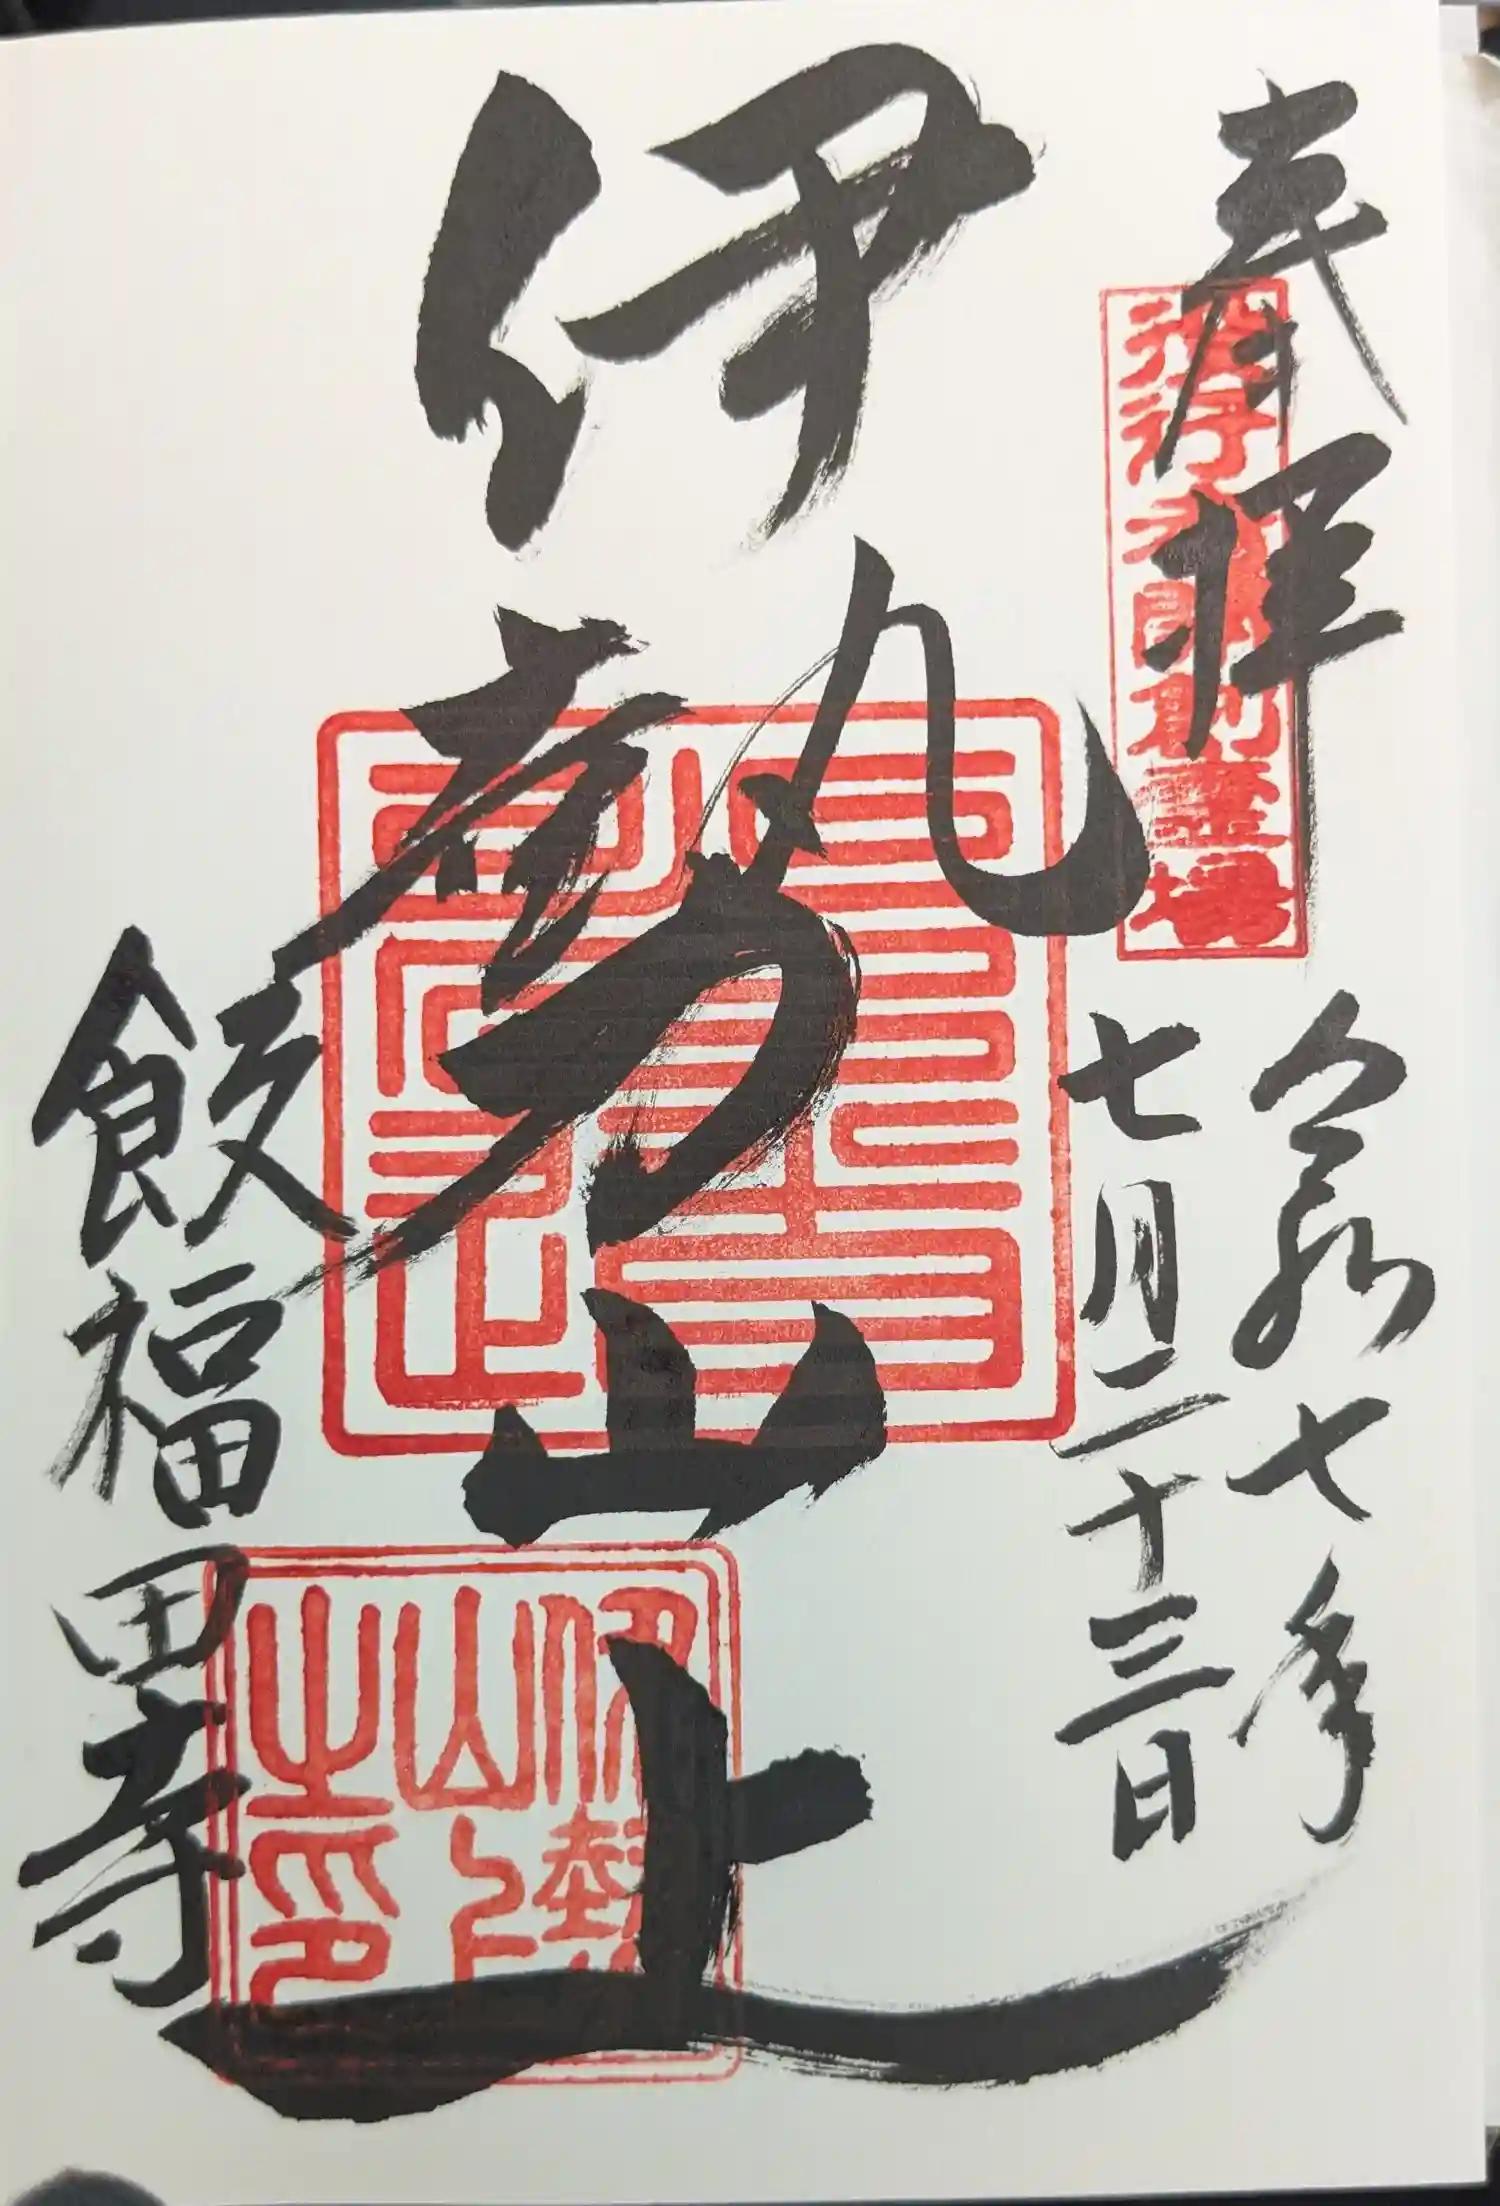 奉拝
令和七年
七月二十三日
伊勢山上
飯福田寺
伊勢山上之印